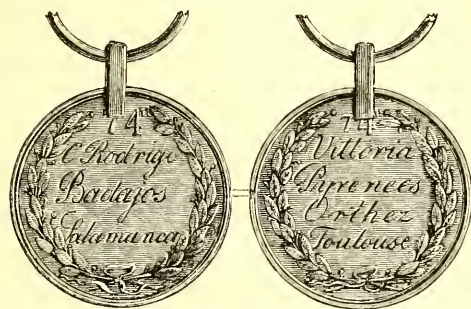 74
C Rodrigo
Badajos
Salamanca
74
Vittoria
Pyrenees
Orthez
Toulouse